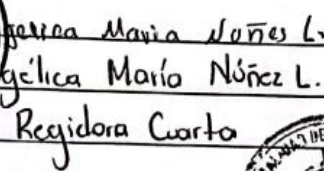 Maria Nuñes L.
gélica María Núñez L.
Regidora Cuarta